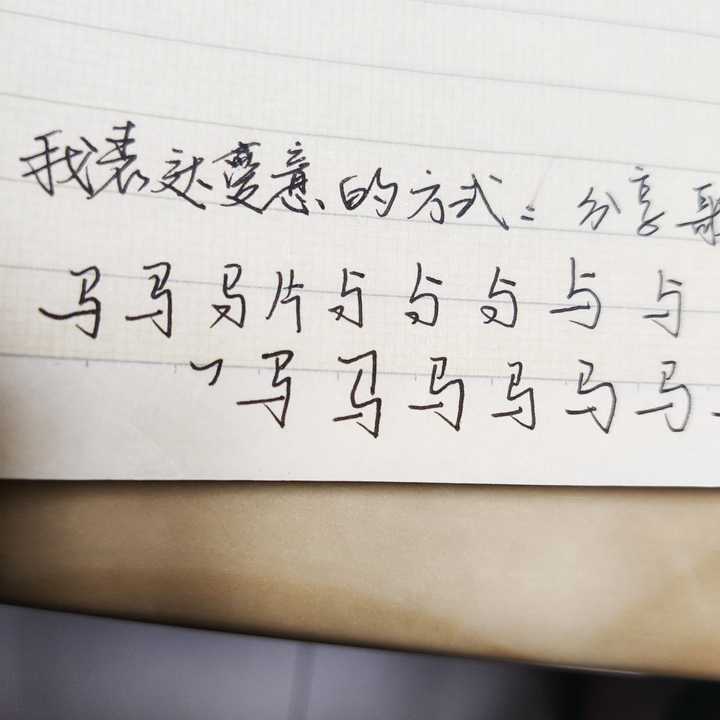 我表达爱意的方式：分享歌
马马马片与与与与与
马马马马马马